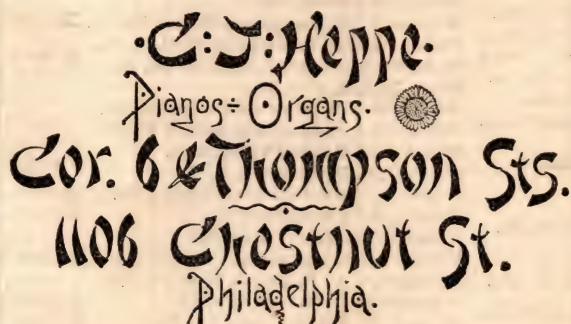 ·C:J:Heppe·
Pianos÷Organs.
Cor. 6 & Thompson Sts.
1106 Chestnut St.
Philadelphia.